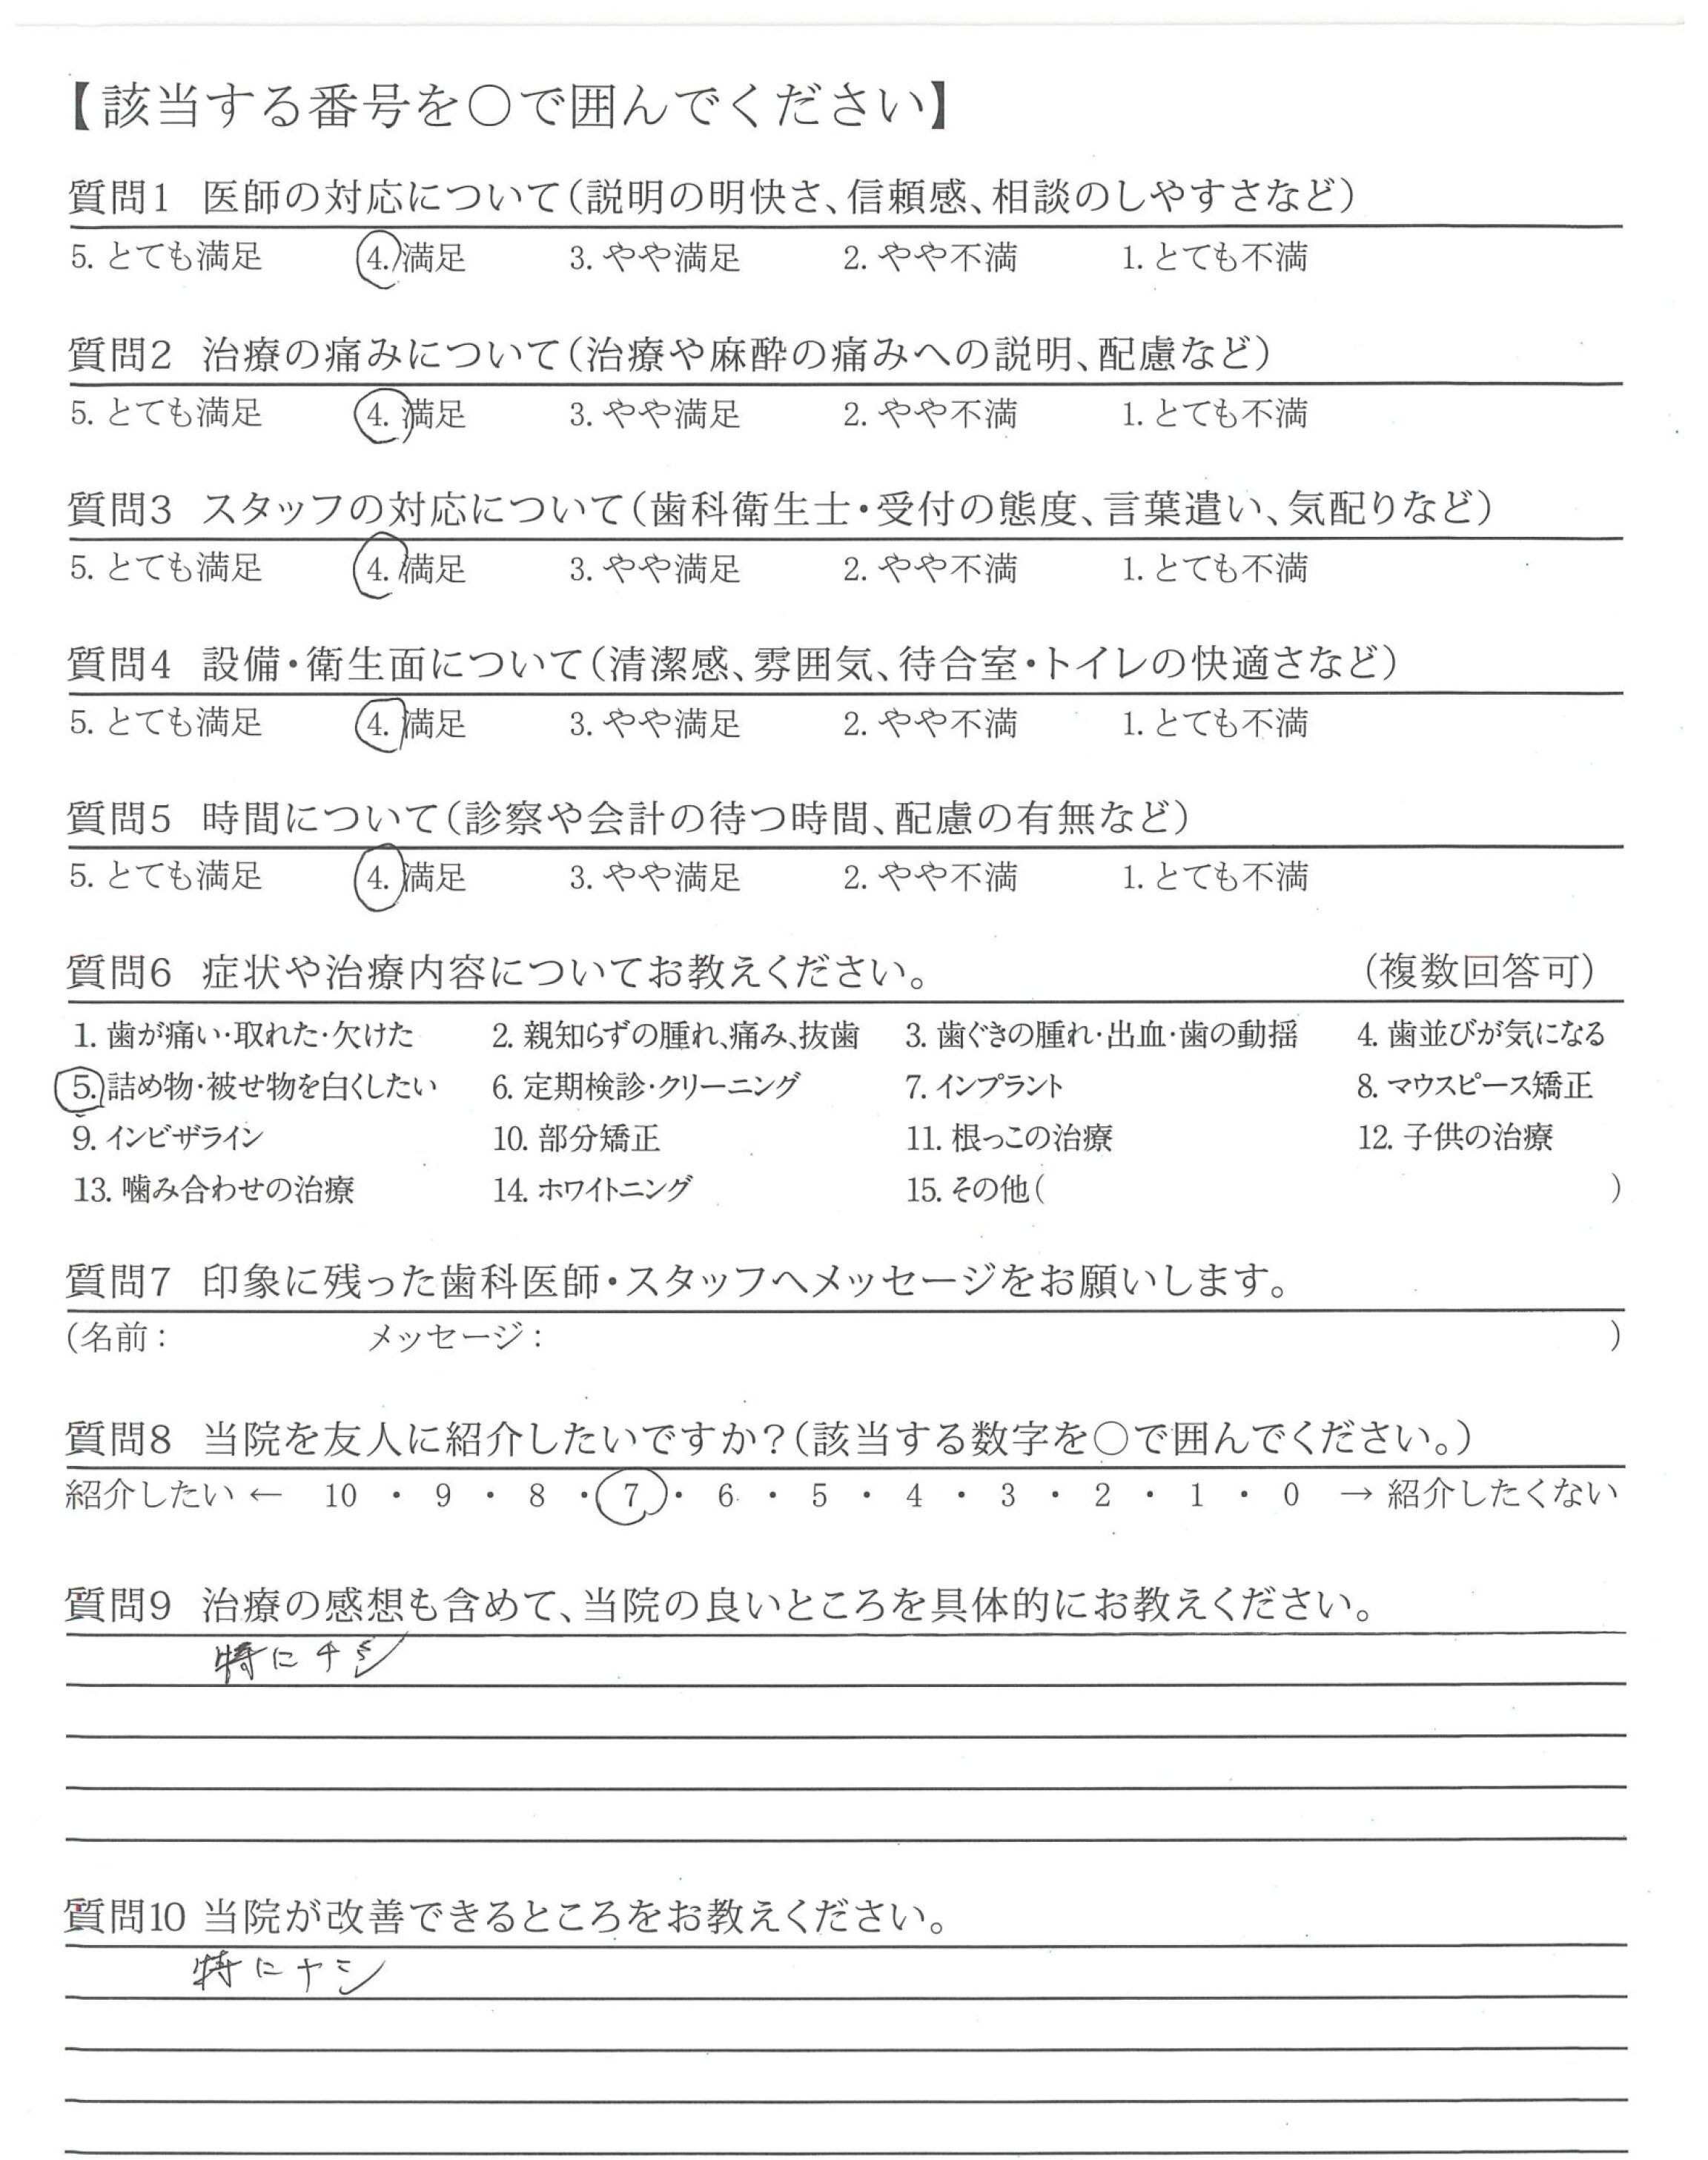 【該当する番号を○で囲んでください】
質問1 医師の対応について（説明の明快さ、信頼感、相談のしやすさなど）
5. とても満足 4. 満足 3. やや満足 2. やや不満 1. とても不満
質問2 治療の痛みについて（治療や麻酔の痛みへの説明、配慮など）
5. とても満足 4. 満足 3. やや満足 2. やや不満 1. とても不満
質問3 スタッフの対応について（歯科衛生士・受付の態度、言葉遣い、気配りなど）
5. とても満足 4. 満足 3. やや満足 2. やや不満 1. とても不満
質問4 設備・衛生面について（清潔感、雰囲気、待合室・トイレの快適さなど）
5. とても満足 4. 満足 3. やや満足 2. やや不満 1. とても不満
質問5 時間について（診察や会計の待つ時間、配慮の有無など）
5. とても満足 4. 満足 3. やや満足 2. やや不満 1. とても不満
質問6 症状や治療内容についてお教えください。 （複数回答可）
1. 歯が痛い・取れた・欠けた 2. 親知らずの腫れ、痛み、抜歯 3. 歯ぐきの腫れ・出血・歯の動揺 4. 歯並びが気になる
5. 詰め物・被せ物を白くしたい 6. 定期検診・クリーニング 7. インプラント 8. マウスピース矯正
9. インビザライン 10. 部分矯正 11. 根っこの治療 12. 子供の治療
13. 噛み合わせの治療 14. ホワイトニング 15. その他（ ）
質問7 印象に残った歯科医師・スタッフへメッセージをお願いします。
（名前： メッセージ： ）
質問8 当院を友人に紹介したいですか？（該当する数字を○で囲んでください。）
紹介したい ← 10 ・ 9 ・ 8 ・ 7 ・ 6 ・ 5 ・ 4 ・ 3 ・ 2 ・ 1 ・ 0 → 紹介したくない
質問9 治療の感想も含めて、当院の良いところを具体的にお教えください。
特にナシ
質問10 当院が改善できるところをお教えください。
特にナシ